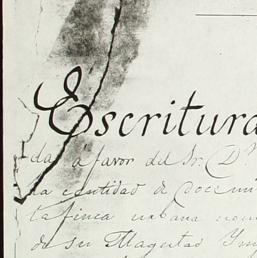 Escritura
da á favor del Sr. Dn
la cantidad de doce mi
la finca urbana
de su Magestad Ymp